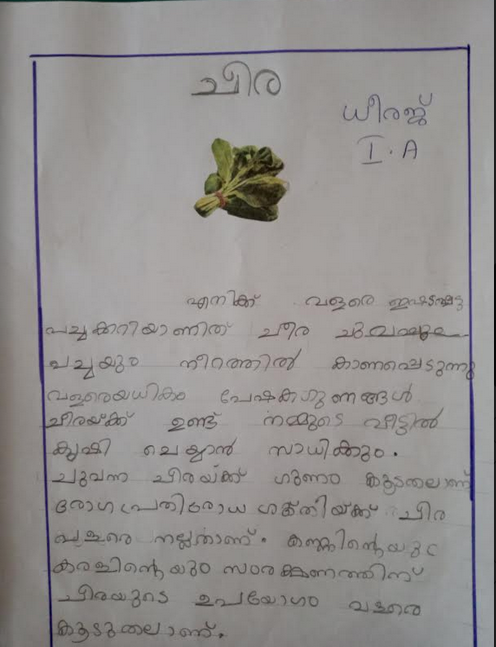 ചീര
ധീരജ്
I.A
എനിക്ക് വളരെ ഇഷ്ടപ്പെട്ട
പച്ചക്കറിയാണിത് ചീര
പച്ചയും നിറത്തിൽ കാണപ്പെടുന്നു
വളരെയധികം പേഷകഗുണങ്ങൾ
ചീരയ്ക്ക് ഉണ്ട് നമ്മുടെ വീട്ടിൽ
കൃഷി ചെയ്യാൻ സാധിക്കും.
ചുവന്ന ചീരയ്ക്ക് ഗുണം കൂടതലാണ്
രോഗ പ്രതിരോധ ശക്തിയ്ക്ക് ചീര
വളരെ നല്ലതാണ്. കണ്ണിന്റെയും
കരളിന്റെയും സംരക്ഷണത്തിന്
ചീരയുടെ ഉപയോഗം വളരെ
കൂടുതലാണ്.